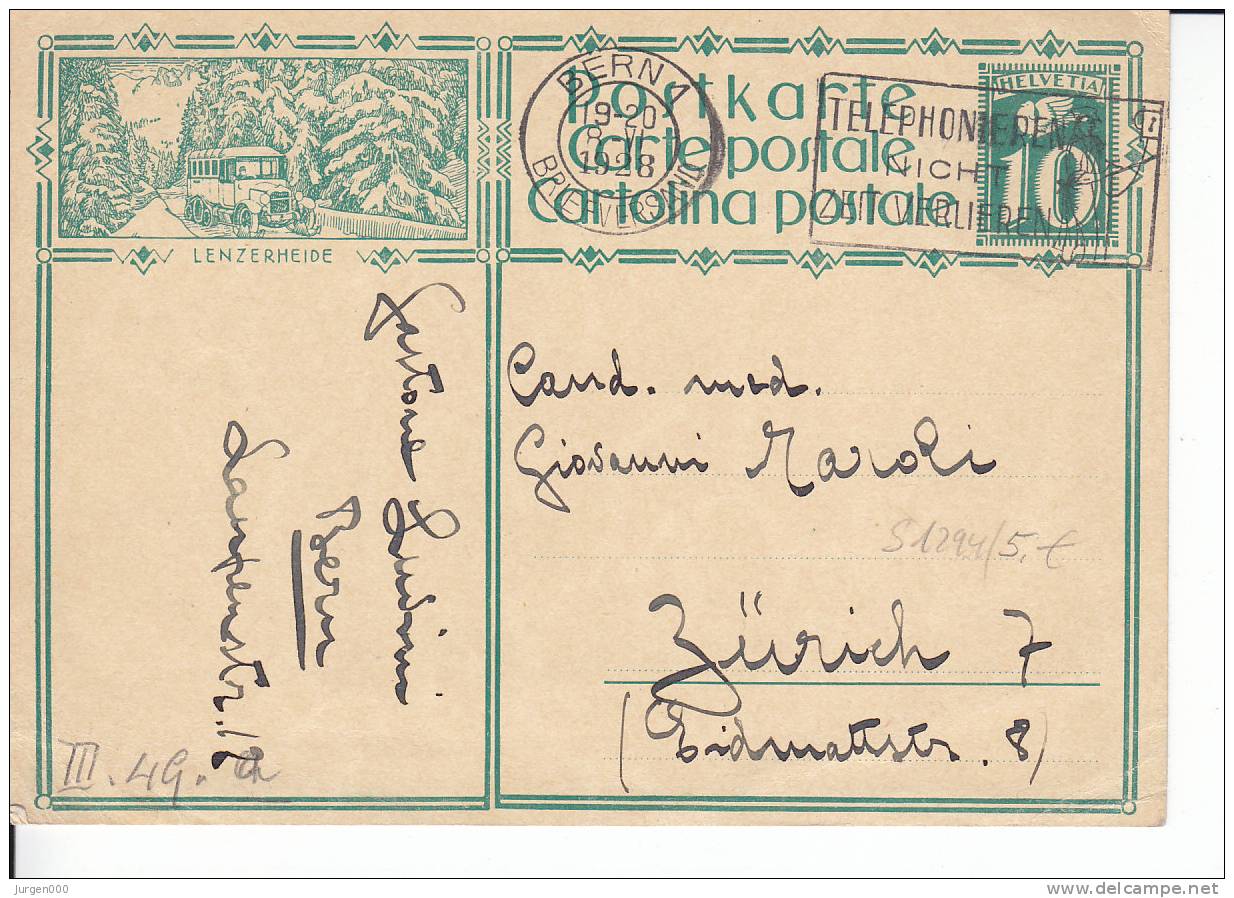 LENZERHEIDE
postkarte
Carte postale
Cartolina postale
BERN 1
19-20
8. VI
1928
BRIEFVERSAND
TELEPHONIEREN
NICHT
ZEIT VERLIEREN
HELVETIA
10
Gastone Luvini
Bern
Laupenstr. 12
Cand. med.
Giovanni Maroli
S1294/5.€
Zürich 7
(Eidmattstr. 8)
III. 49.
Jurgen000
www.delcampe.net